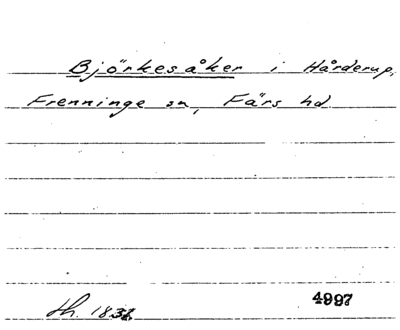 Björkesåker i Hårderup,
Frenninge sn, Färs hd
th. 1838
4997